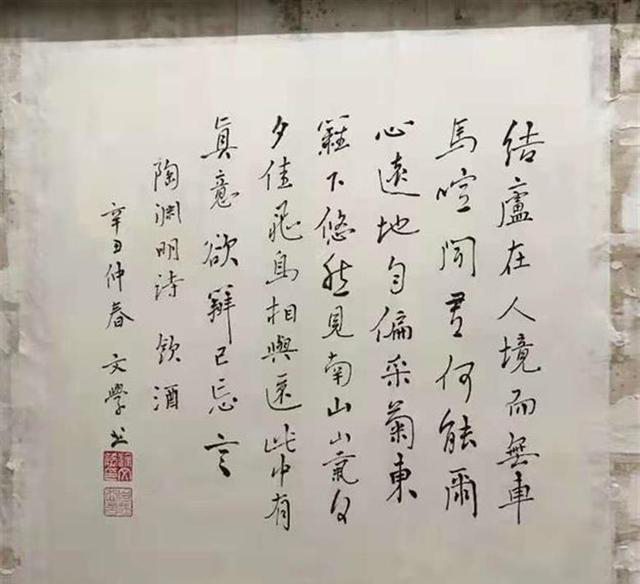 結廬在人境而無車
馬喧問君何能爾
心遠地自偏采菊東
籬下悠然見南山山氣日
夕佳飛鳥相與還此中有
真意欲辯已忘言
陶淵明詩 飲酒
辛丑仲春 文學书